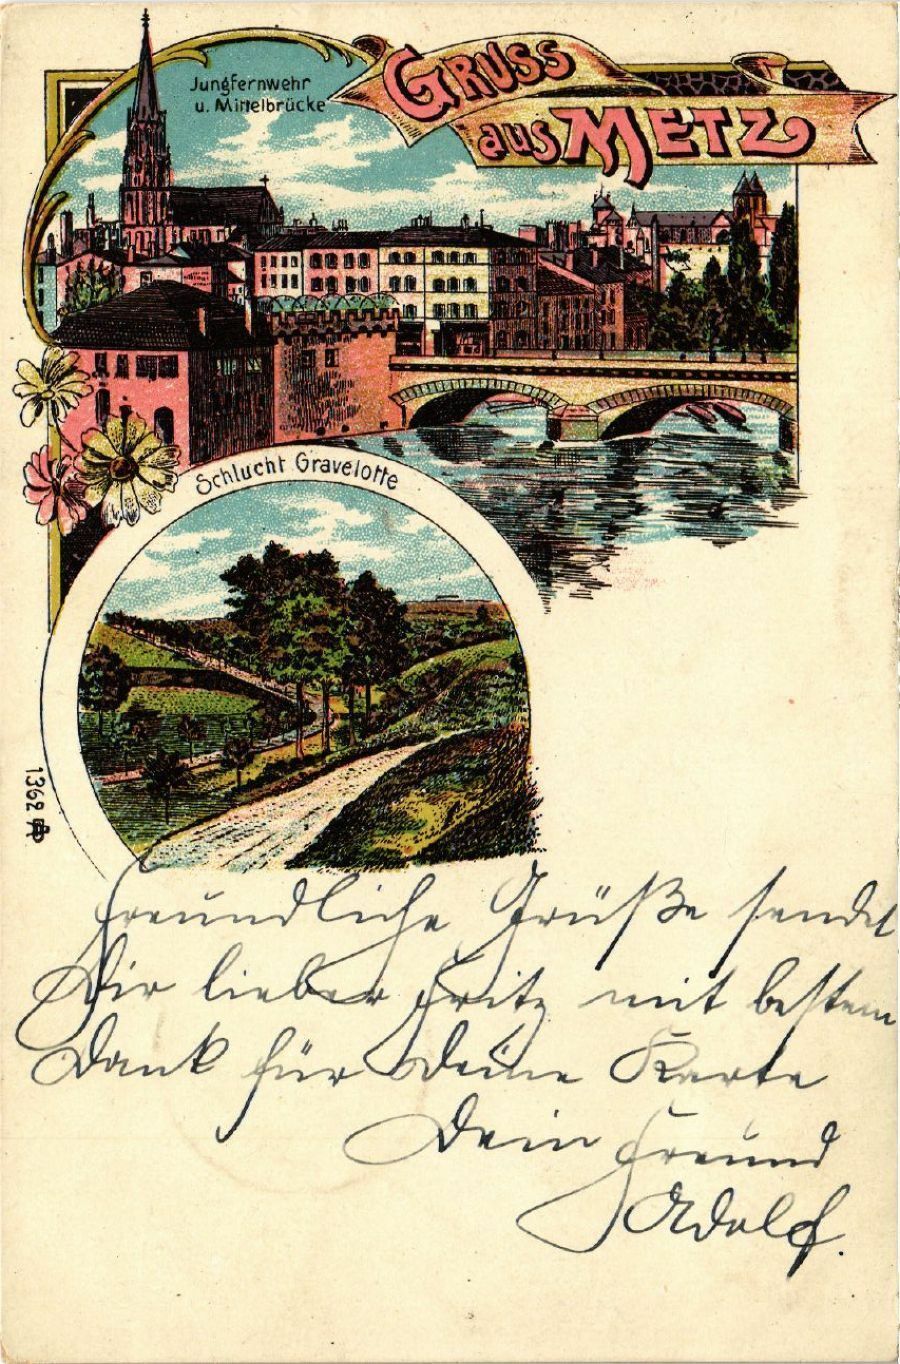 Jungfernwehr
u. Mittelbrücke
GRUSS
aus METZ
Schlucht Gravelotte
1362
Freundliche Grüße sendet
Dir lieber Fritz mit bestem
Dank für Deine Karte
Dein Freund
Adolf.